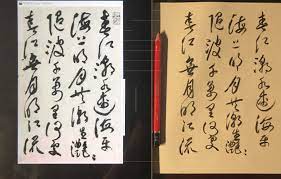 春江潮水連海平
海上明月共潮生灩〻
隨波千萬里何處
春江無月明江流
春江潮水連海平
海上明月共潮生灩〻
隨波千萬里何處
春江無月明江流